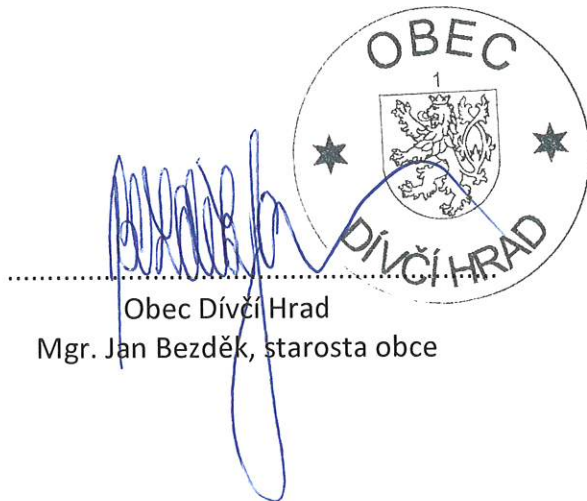 OBEC
1
DÍVČÍ HRAD
Obec Dívčí Hrad
Mgr. Jan Bezděk, starosta obce